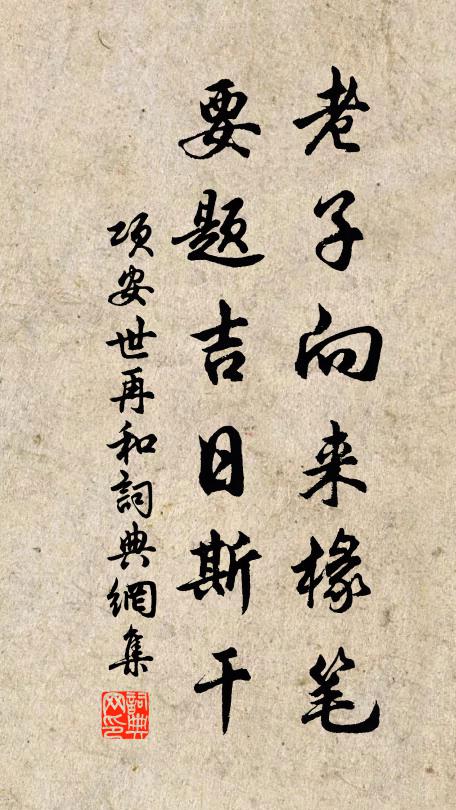 老子向来椽笔
要题吉日斯干
项安世再和詞典網集
詞典网印